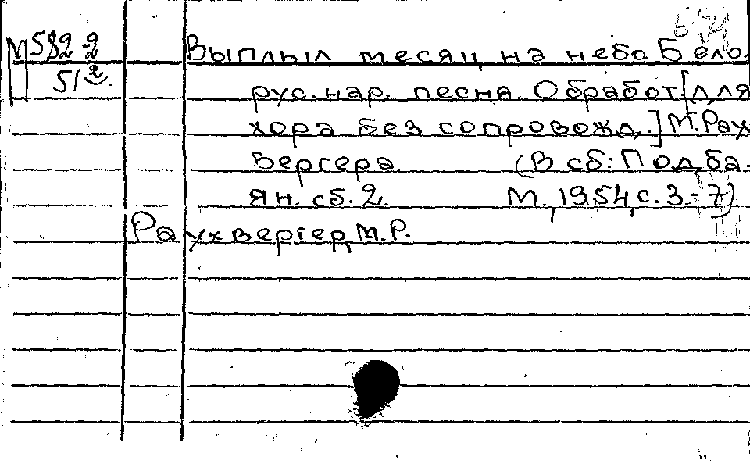 М 582-2
51 2.
Выплыл месяц на небо Бело-
рус. нар. песня. Обработ [для
хора без сопровожд.] М. Рах
вергера. (В сб: Под ба-
ян. сб. 2. М, 1954, с. 3-7)
Раухвергер, М.Р.